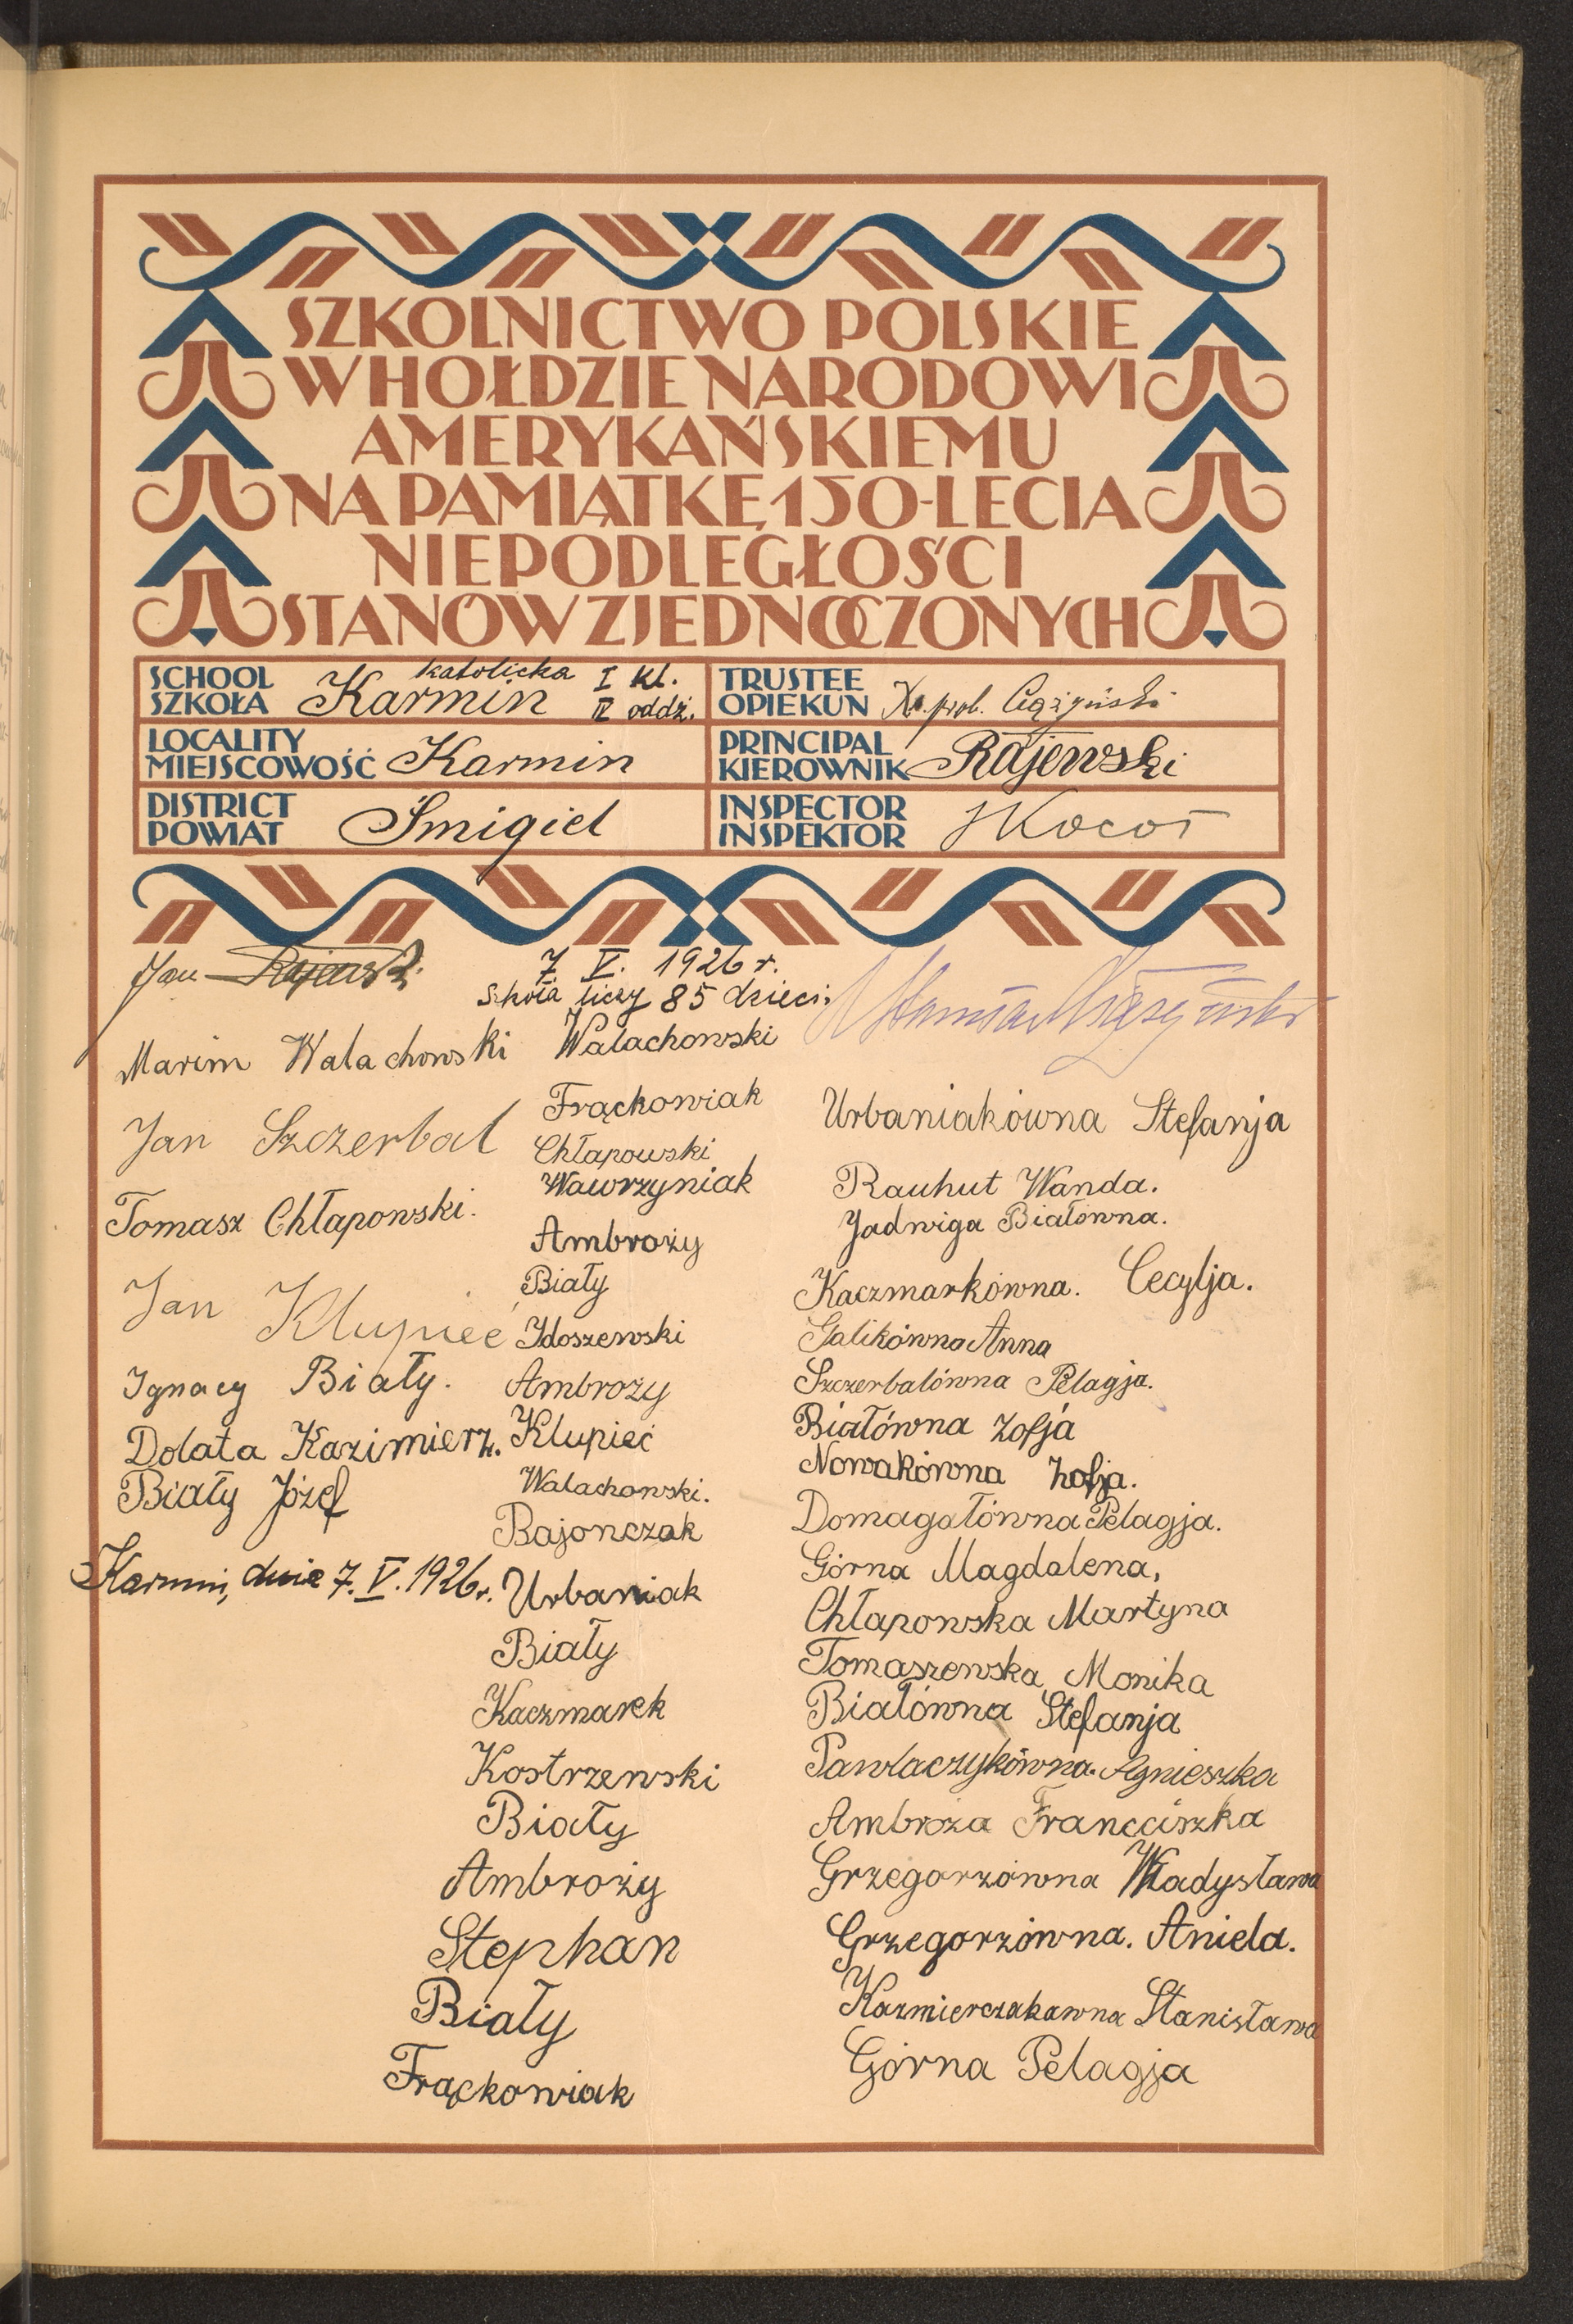 SZKOLNICTWO POLSKIE
W HOŁDZIE NARODOWI
AMERYKAŃSKIEMU
NA PAMIĄTKĘ 150-LECIA
NIEPODLEGŁOŚCI
STANÓW ZJEDNOCZONYCH
SCHOOL
SZKOŁA
katolicka I kl.
Karmin IV oddz.
TRUSTEE
OPIEKUN
prob.
LOCALITY
MIEJSCOWOŚĆ Karmin
PRINCIPAL
KIEROWNIK Rajewski
DISTRICT
POWIAT Śmigiel
INSPECTOR
INSPEKTOR
Jan Rajewski
7. V. 1926 r.
Szkoła liczy 85 dzieci.
Marim Walachowski
Jan Szczerbal
Tomasz Chłapowski.
Jan Klupieć
Ignacy Biały.
Dolata Kazimierz.
Biały Józef
Karmin, dnia 7. V. 1926 r.
Walachowski
Frąckowiak
Chłapowski
Wawrzyniak
Ambroży
Biały
Idoszewski
Ambroży
Klupieć
Walachowski.
Bajonczak
Urbaniak
Biały
Kaczmarek
Kostrzewski
Biały
Ambroży
Stephan
Biały
Frąckowiak
Urbaniakówna Stefanja
Rauhut Wanda.
Jadwiga Białówna.
Kaczmarkówna. Cecylja.
Galikówna Anna
Szczerbalówna Pelagja.
Białówna Zofja
Nowakówna Zofja.
Domagałówna Pelagja.
Górna Magdalena,
Chłapowska Martyna
Tomaszewska Monika
Białówna Stefanja
Pawlaczykówna. Agnieszka
Ambroża Franciszka
Grzegorzówna Władysława
Grzegorzówna. Aniela.
Kazmierczakawna Stanisława
Górna Pelagja